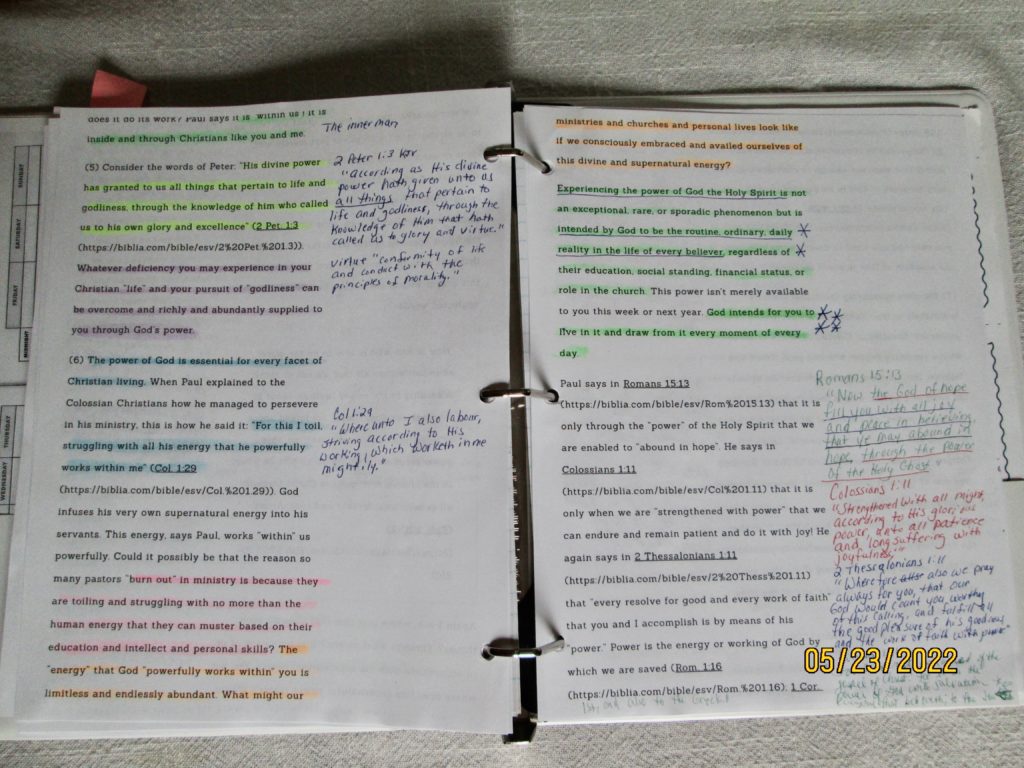 does it do its work? Paul says it is "within us"! It is
inside and through Christians like you and me.
The inner man
(5) Consider the words of Peter: "His divine power
has granted to us all things that pertain to life and
godliness, through the knowledge of him who called
us to his own glory and excellence" (2 Pet. 1:3
(https://biblia.com/bible/esv/2%20Pet.%201.3)).
Whatever deficiency you may experience in your
Christian "life" and your pursuit of "godliness" can
be overcome and richly and abundantly supplied to
you through God's power.
2 Peter 1:3 KJV
"According as His divine
power hath given unto us
all things that pertain to
life and godliness, through the
knowledge of Him that hath
called us to glory and virtue."
virtue "conformity of life
and conduct with the
principles of morality."
(6) The power of God is essential for every facet of
Christian living. When Paul explained to the
Colossian Christians how he managed to persevere
in his ministry, this is how he said it: "For this I toil,
struggling with all his energy that he powerfully
works within me" (Col. 1:29
(https://biblia.com/bible/esv/Col.%201.29)). God
infuses his very own supernatural energy into his
servants. This energy, says Paul, works "within" us
powerfully. Could it possibly be that the reason so
many pastors "burn out" in ministry is because they
are toiling and struggling with no more than the
human energy that they can muster based on their
education and intellect and personal skills? The
"energy" that God "powerfully works within" you is
limitless and endlessly abundant. What might our
Col 1:29
"Where unto I also labour,
striving according to His
working, which worketh in me
mightily."
ministries and churches and personal lives look like
if we consciously embraced and availed ourselves of
this divine and supernatural energy?
Experiencing the power of God the Holy Spirit is not
an exceptional, rare, or sporadic phenomenon but is
intended by God to be the routine, ordinary, daily
reality in the life of every believer, regardless of
their education, social standing, financial status, or
role in the church. This power isn't merely available
to you this week or next year. God intends for you to
live in it and draw from it every moment of every
day.
Paul says in Romans 15:13
(https://biblia.com/bible/esv/Rom%2015.13) that it is
only through the "power" of the Holy Spirit that we
are enabled to "abound in hope". He says in
Colossians 1:11
(https://biblia.com/bible/esv/Col%201.11) that it is
only when we are "strengthened with power" that we
can endure and remain patient and do it with joy! He
again says in 2 Thessalonians 1:11
(https://biblia.com/bible/esv/2%20Thess%201.11)
that "every resolve for good and every work of faith"
that you and I accomplish is by means of his
"power." Power is the energy or working of God by
which we are saved (Rom. 1:16
(https://biblia.com/bible/esv/Rom.%201.16); 1 Cor.
Romans 15:13
"Now the God of hope
fill you with all joy
and peace in believing,
that ye may abound in
hope, through the power
of the Holy Ghost"
Colossians 1:11
"Strengthened with all might,
according to His glorious
power, unto all patience
and longsuffering with
joyfulness;"
2 Thessalonians 1:11
"Wherefore also we pray
always for you, that our
God would count you worthy
of this calling, and fulfill all
the good pleasure of his goodness,
and the work of faith with power"
05/23/2022
SUNDAY
SATURDAY
FRIDAY
MIDNIGHT
THURSDAY
WEDNESDAY